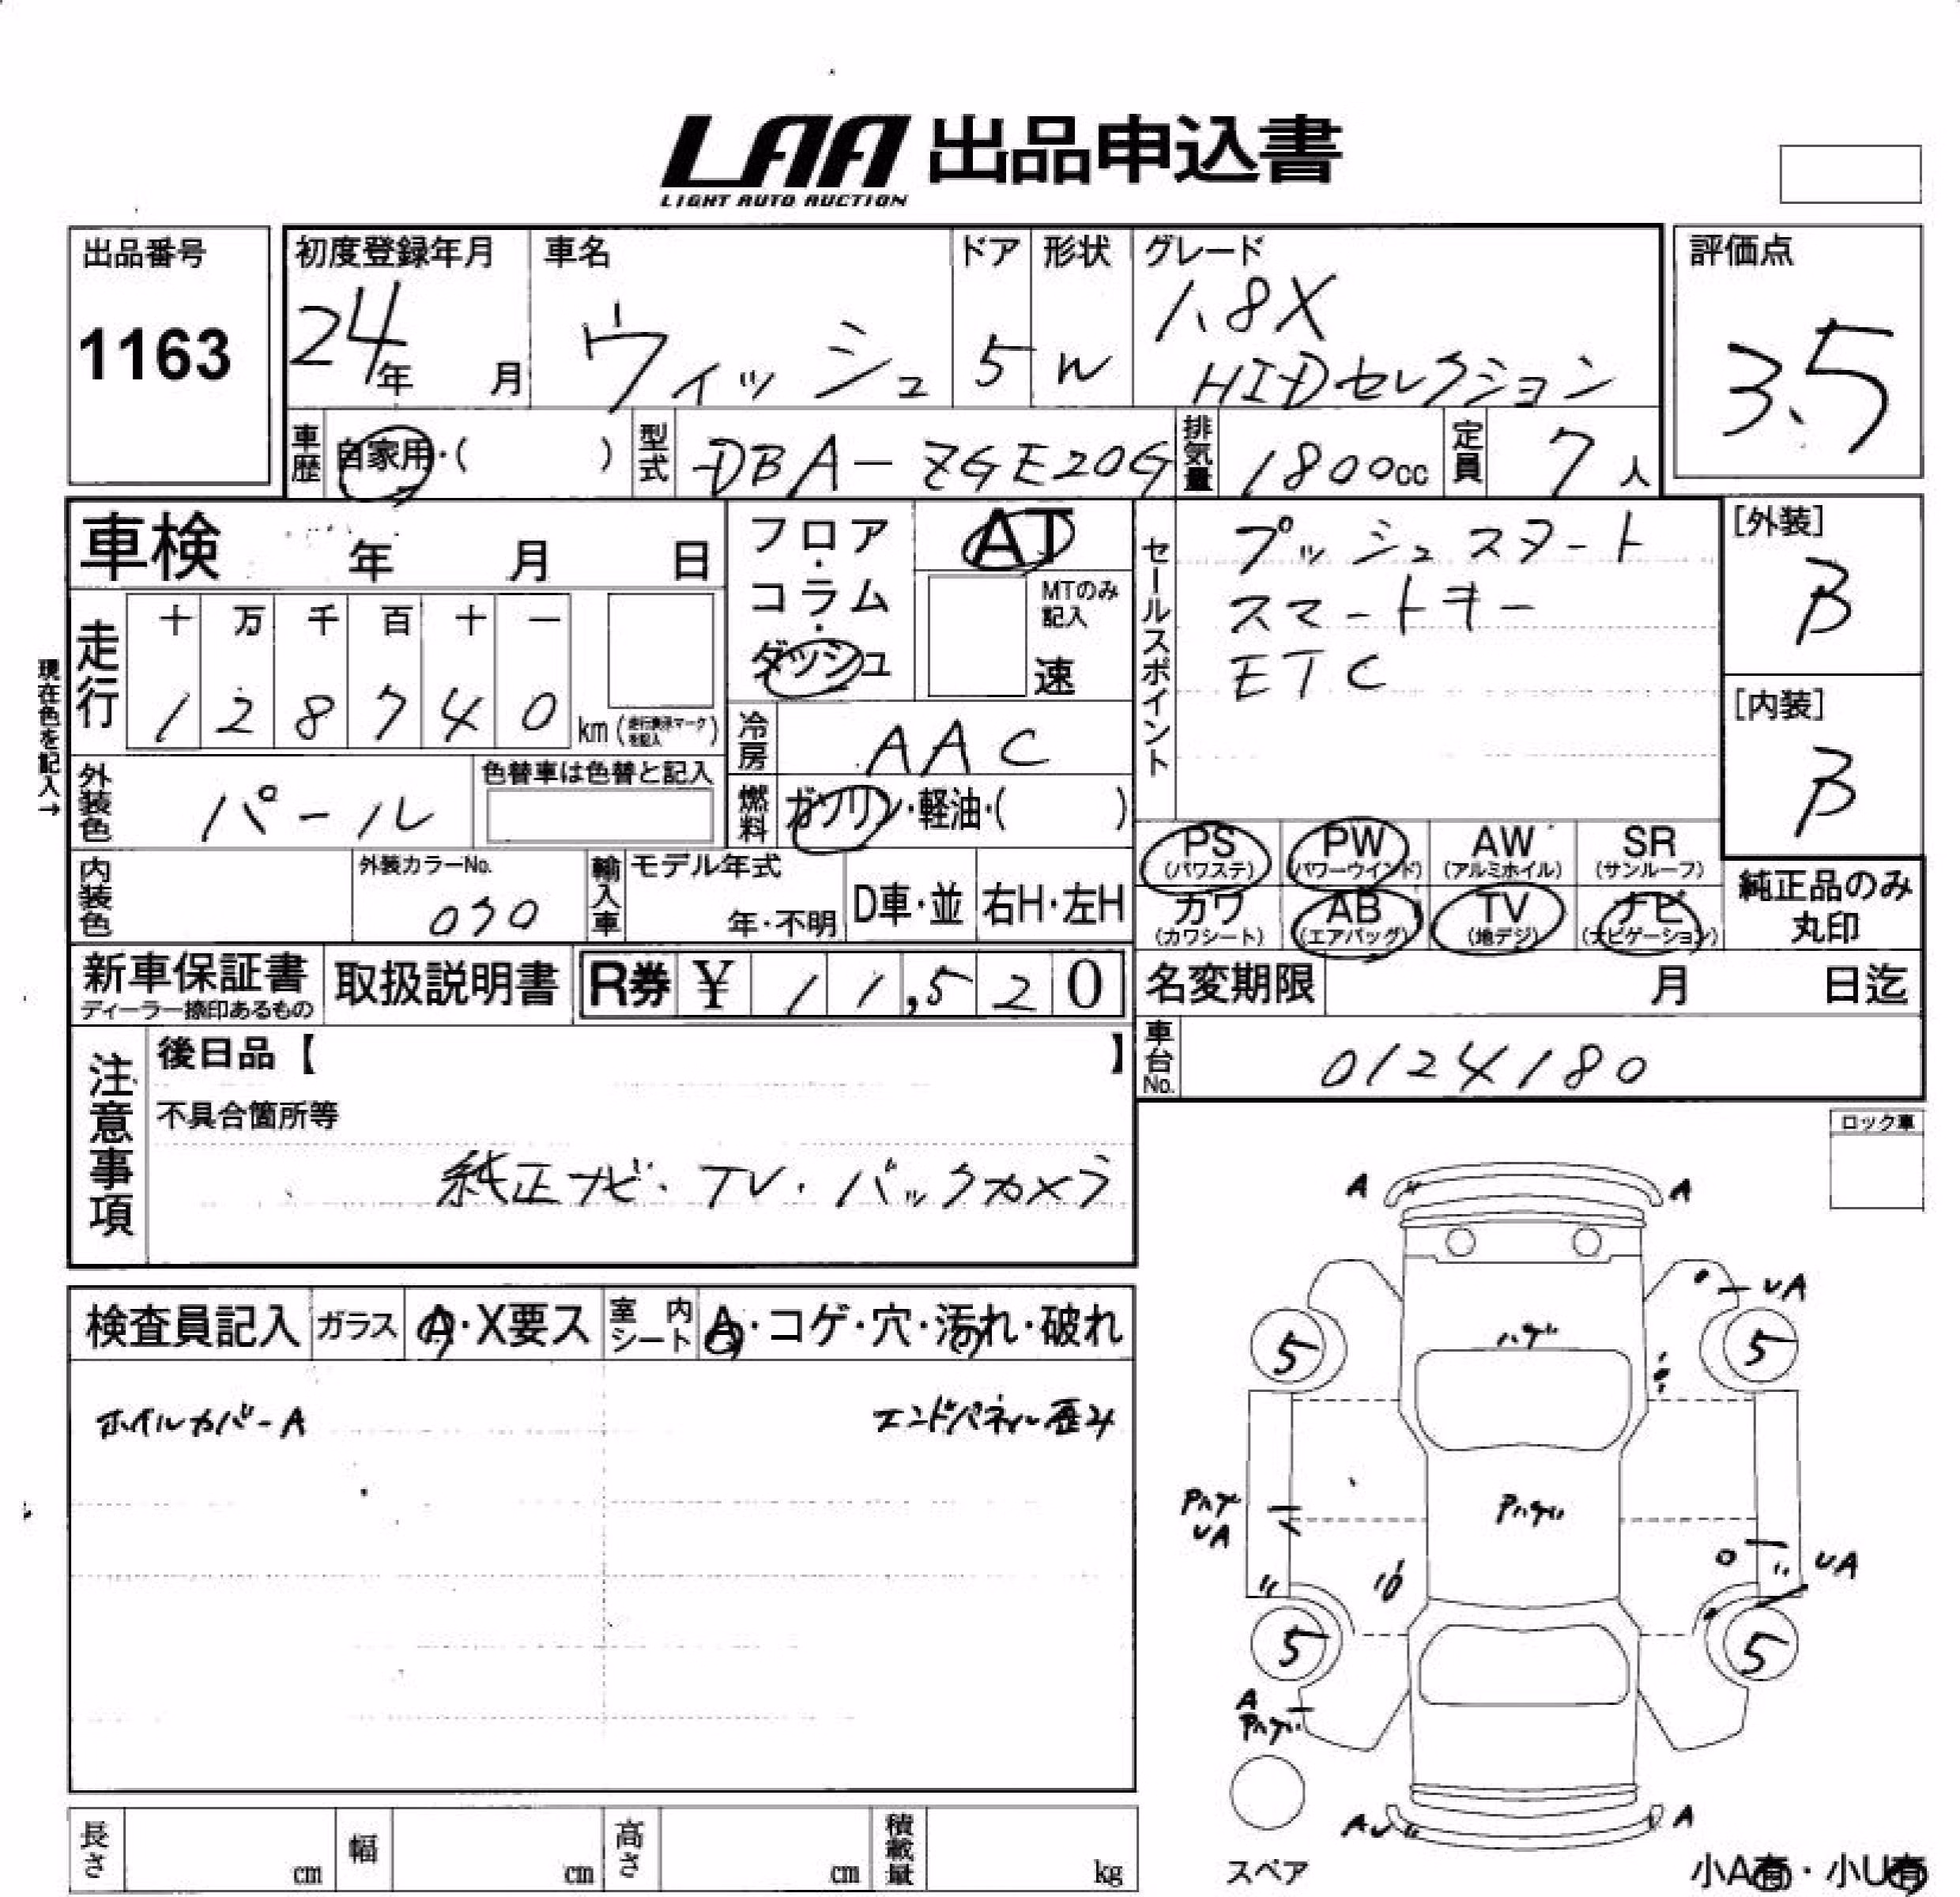 LAA 出品申込書
LIGHT AUTO AUCTION
出品番号
1163
初度登録年月
24年 月
車名
ウィッシュ
ドア
5
形状
W
グレード
1.8X
HIDセレクション
評価点
3.5
車歴
自家用・( )
型式
DBA-ZGE20G
排気量
1800cc
定員
7人
車検 年 月 日
フロア・コラム・ダッシュ
AT
MTのみ記入
速
セールスポイント
プッシュスタート
スマートキー
ETC
[外装]
B
[内装]
B
現在色を記入→
走行
十 万 千 百 十 一
1 2 8 7 4 0 km (走行表示マークを記入)
冷房
AAC
外装色
パール
色替車は色替と記入
燃料
ガソリン・軽油・( )
PS (パワステ)
PW (パワーウインド)
AW (アルミホイル)
SR (サンルーフ)
カワ (カワシート)
AB (エアバッグ)
TV (地デジ)
ナビ (ナビゲーション)
純正品のみ丸印
内装色
外装カラーNo.
070
輸入車
モデル年式
年・不明
D車・並
右H・左H
新車保証書
ディーラー捺印あるもの
取扱説明書
R券 ¥ 11,520
名変期限 月 日迄
車台No.
0124180
注意事項
後日品【 】
不具合箇所等
純正ナビ・TV・バックカメラ
ロック車
検査員記入
ガラス
A・X要ス
室内シート
A・コゲ・穴・汚れ・破れ
ホイルカバーA
エンドパネル歪み
A A
UA
5 5
ハゲ
Pハゲ
UA
Pハゲ
UA
5 5
A
Pハゲ
スペア
AU A
小A有・小U有
長さ cm
幅 cm
高さ cm
積載量 kg